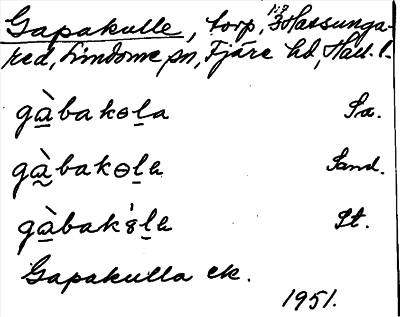 Gapakulle, torp, 1:3 Hassunga-
red, Lindome sn, Fjäre hd, Hall. l.
gàbakɵla Sa.
gàbakɵlа Sand.
gàbak8̀la St.
Gapakulla ek.
1951.